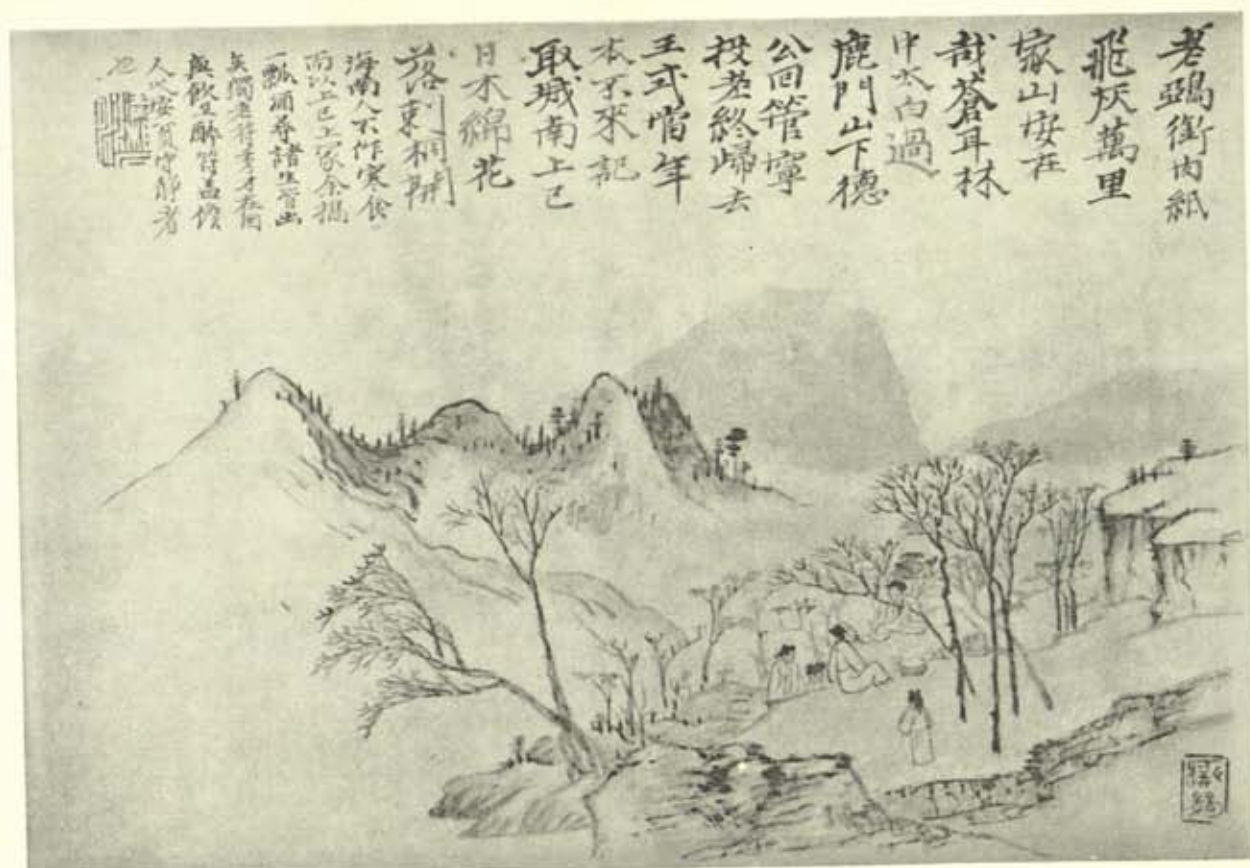 老鴉銜肉紙
飛灰萬里
家山安在
哉蒼耳林
中太白過
鹿門山下德
公回管寧
投老終歸去
王式當年
本不來記
取城南上巳
日木綿花
落刺桐開
海南人不作寒食
而以上巳上冢余攜
一瓢酒尋諸生皆出
矣獨老符秀才在因
與飲至醉符蓋儋
人之安貧守靜者
也